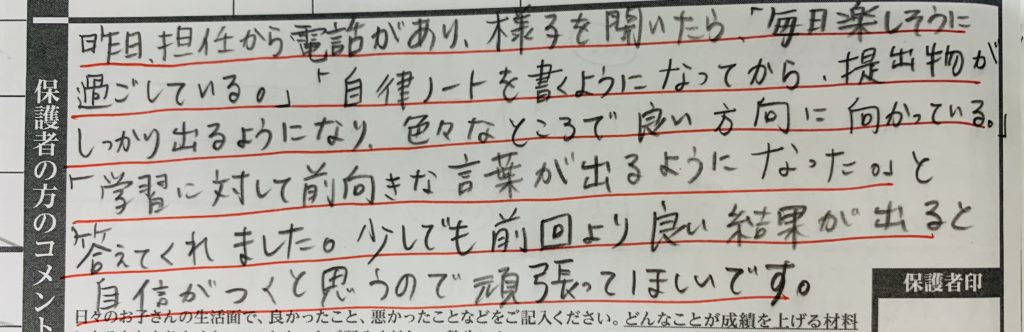 保護者の方のコメント
昨日、担任から電話があり、様子を聞いたら、「毎日楽しそうに
過ごしている。」「自律ノートを書くようになってから、提出物が
しっかり出るようになり、色々なところで良い方向に向かっている。」
「学習に対して前向きな言葉が出るようになった。」と
答えてくれました。少しでも前回より良い結果が出ると
自信がつくと思うので頑張ってほしいです。
保護者印
日々のお子さんの生活面で、良かったこと、悪かったことなどをご記入ください。どんなことが成績を上げる材料